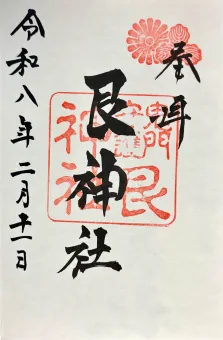 奉拝
艮神社
鬼門
守護
艮
神社
令和八年二月十一日